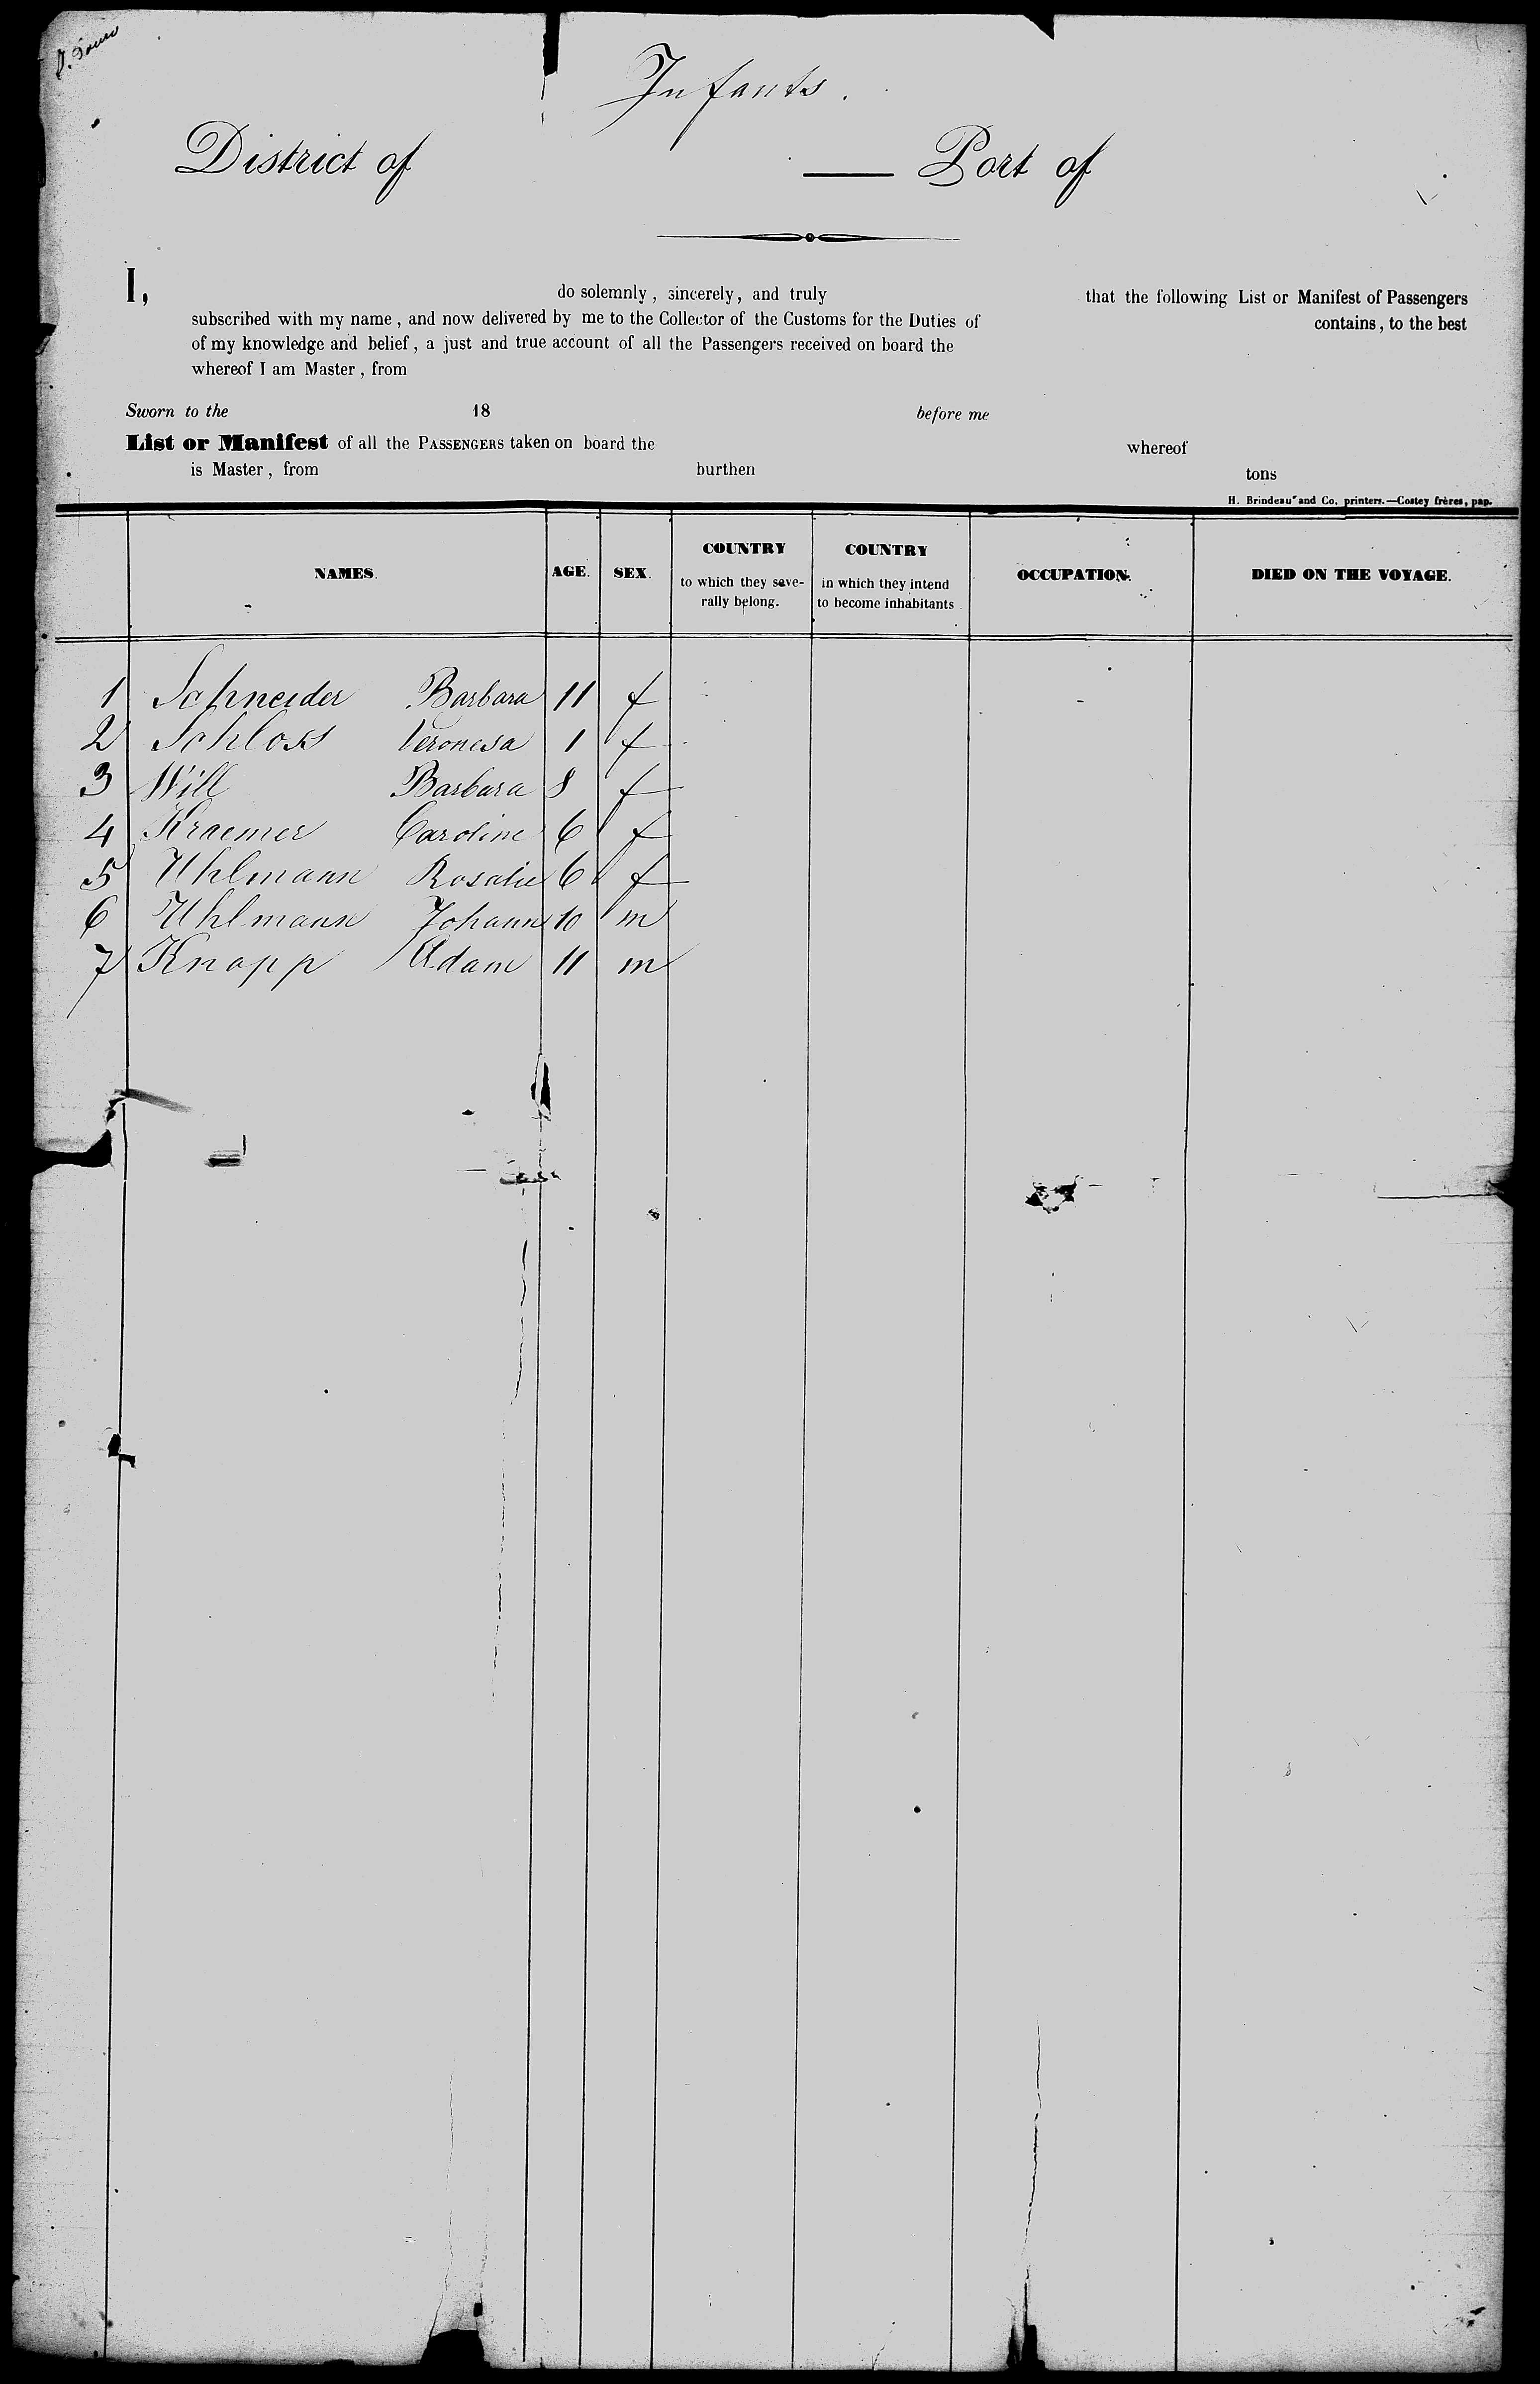 Infants.
District of — Port of
I, do solemnly, sincerely, and truly that the following List or Manifest of Passengers
subscribed with my name, and now delivered by me to the Collector of the Customs for the Duties of contains, to the best
of my knowledge and belief, a just and true account of all the Passengers received on board the
whereof I am Master, from
Sworn to the 18 before me
List or Manifest of all the PASSENGERS taken on board the whereof
is Master, from burthen tons
H. Brindeau and Co, printers.—Costey frères, pap.
NAMES. AGE. SEX. COUNTRY to which they severally belong. COUNTRY in which they intend to become inhabitants. OCCUPATION. DIED ON THE VOYAGE.
1 Schneider Barbara 11 f
2 Schloss Veronesa 1 f
3 Will Barbara 8 f
4 Kraemer Caroline 6 f
5 Uhlmann Rosalie 6 f
6 Uhlmann Johann 10 m
7 Knapp Adam 11 m